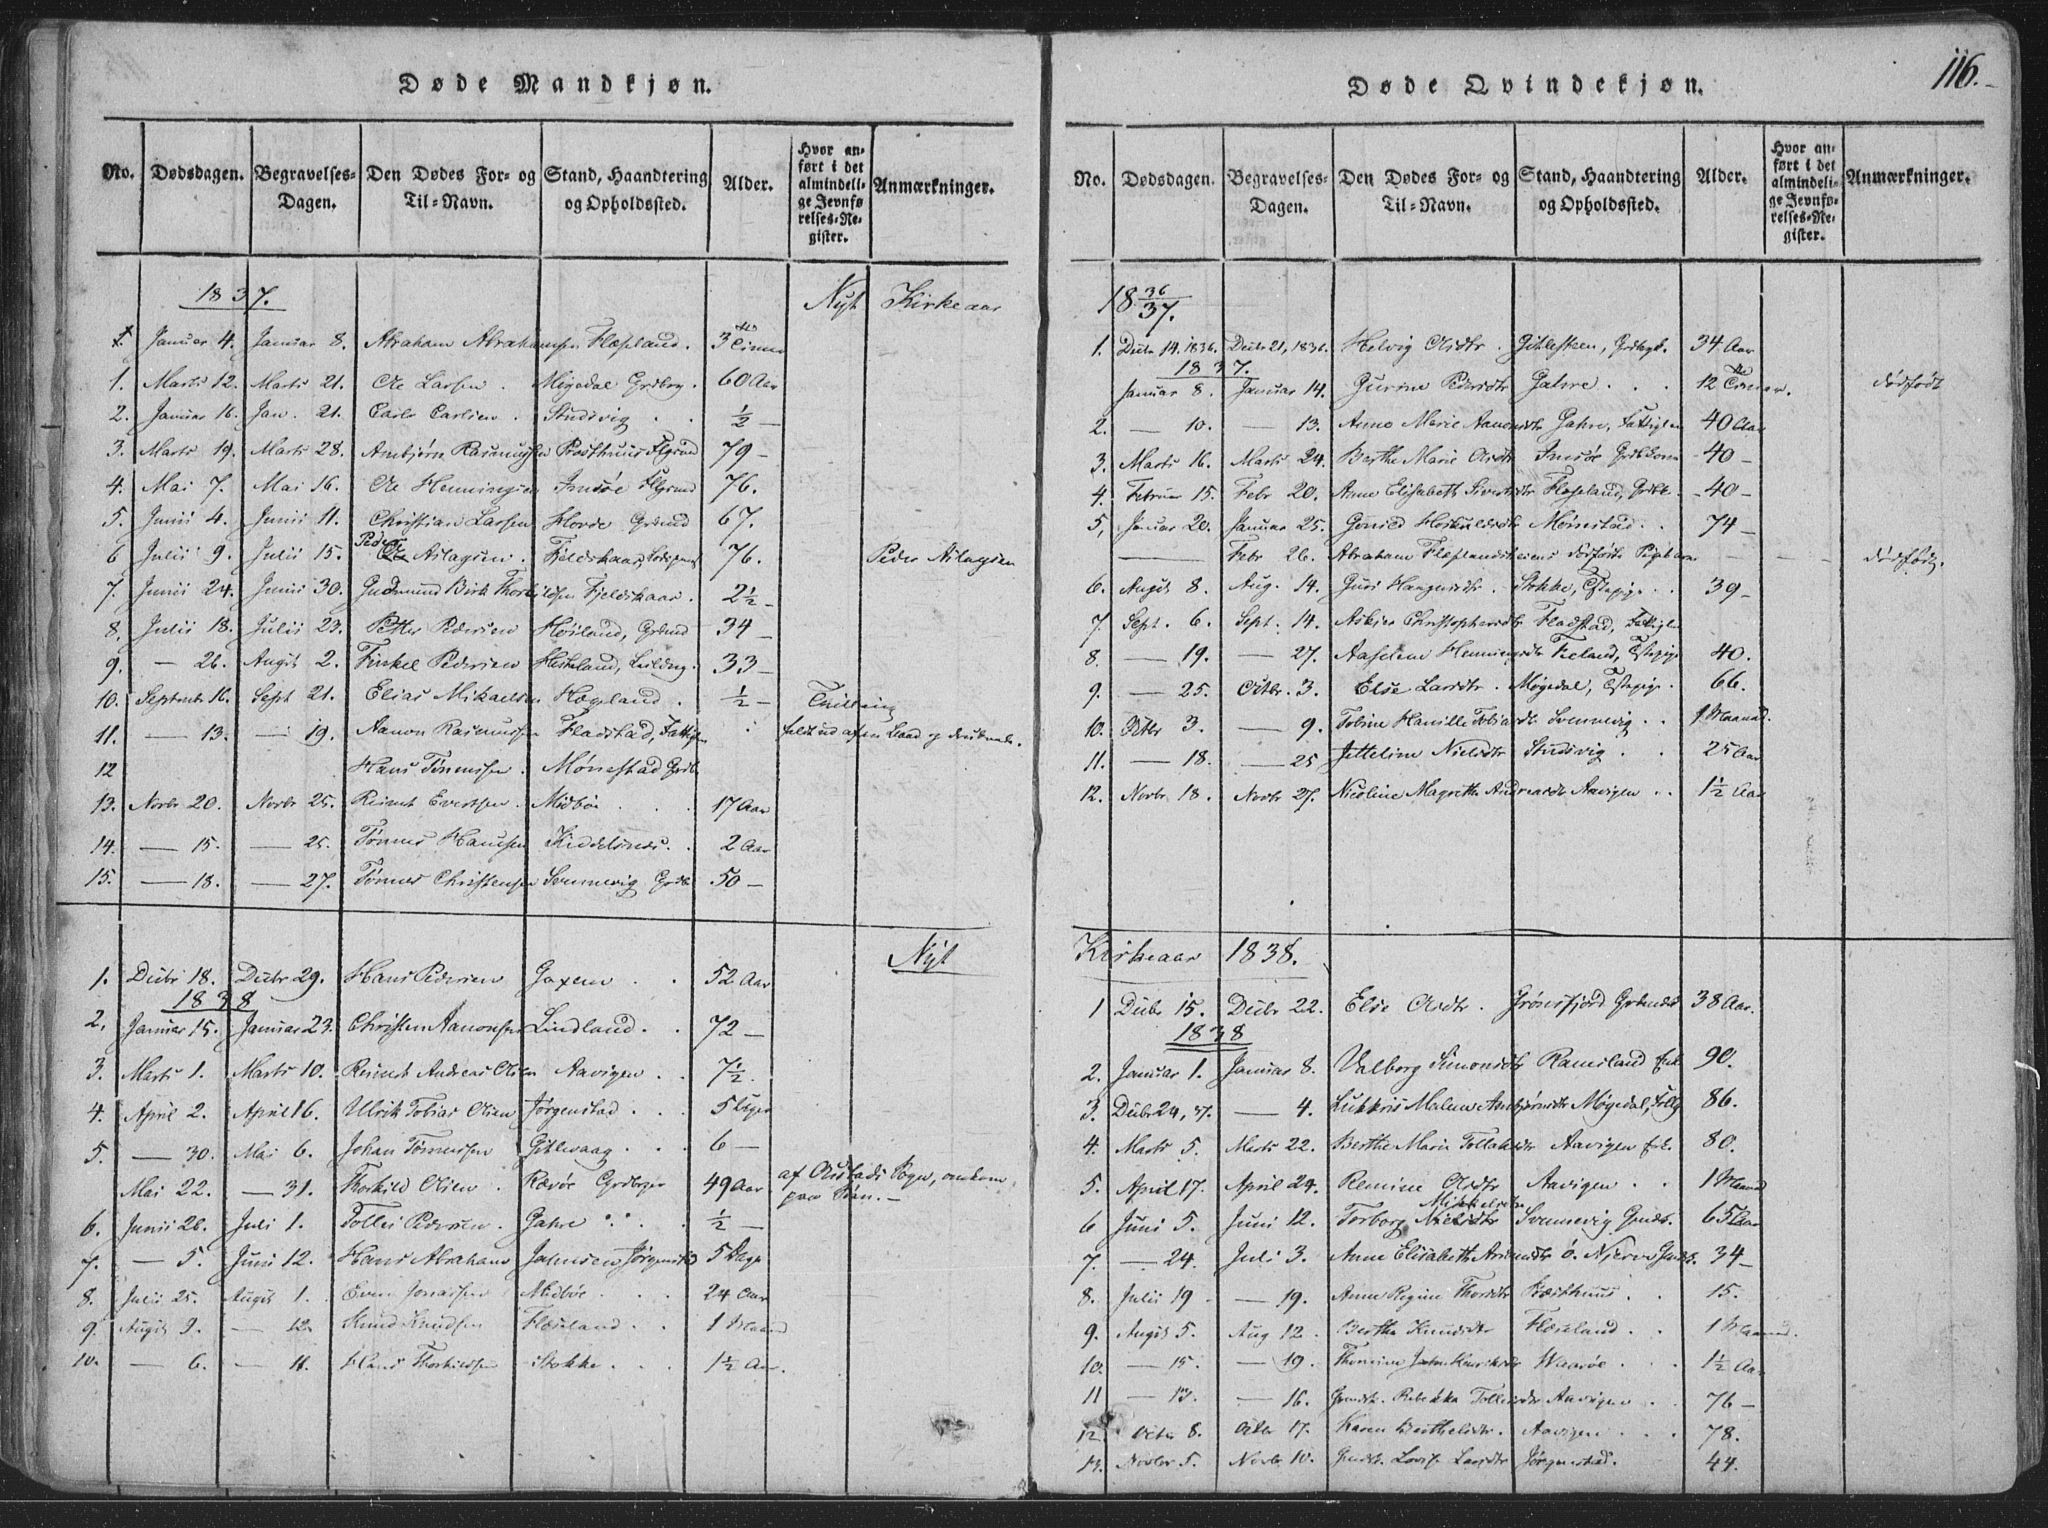 116.
Døde Mandkjøn.
No. Dødsdagen. Begravelses-Dagen. Den Dødes For- og Til-Navn. Stand, Haandtering og Opholdssted. Alder. Hvor anført i det almindelige Jevnførelses-Register. Anmærkninger.
1837. Nyt Kirkeaar
1. Januar 4. Januar 8. Abraham Abrahamsen Flæseland. 3 Timer
1. Marts 12. Marts 21. Ole Larsen. Migedal Grdbrg. 60 Aar
2. Januar 16. Jan. 21. Carl Carlsen. Studsvig ½ —
3. Marts 19. Marts 28. Anbjørn Rasmussen Præsthuus 79 —
4. Mai 7. Mai 16. Ole Henningsen Imsøe 76.
5. Junii 4. Junii 11. Christian Larsen Hovde Grdmd 67.
6 Julii 9. Julii 15. Peder Aslagsen. Fjeldskaar, 76. Peder Aslagsen
7. Junii 24. Junii 30. Gudmund Birk Thorkildsen Fjeldskaar. 2½ —
8. Julii 18. Julii 23. Petter Pedersen Høiland, Grdmd 34 —
9. — 26. Augst 2. Tinkel Pedersen Heskeland, 33 —
10. Septembr 16. Sept 21. Elias Mikaelsen Hægeland. ½ — Tvilling
11. — 13. — 19. Aamon Rasmussen Fladstad, Fattiglem faldt ud af en Baad og druknede.
12 Hans Tønnessen. Mønestad Grdb.
13. Novbr 20. Novbr 25. Reinert Evertsen. Midbøe 17 Aar
14. — 15. — 25. Tønnes Hansen Kiddelsnes. 2 Aar
15. — 18. — 27. Tønnes Christensen Svennevig Grdb 50 —
Nyt
1. Decbr 18. Decbr 29. Hans Pedersen Goxem 52 Aar
1838
2. Januar 15. Januar 23. Christen Aanonsen Lindland. 72 —
3. Marts 1. Marts 10. Reinert Andreas Olsen Aavigen 7½.
4. April 2. April 16. Ulrik Tobias Olsen Jørgenstad 5 Uger
5. — 30. Mai 6. Johan Tønnessen Gitlevaag 6 —
Mai 22. — 31. Thorkild Olsen. Rævø Grdbrger 49 Aar af Oustads Sogn, omkom paa Søen. —
6. Junii 26. Juli 1. Tolles Pedersen. Gahre ½ —
7. — 5. Juni 12. Hans Abraham Jahnsen Jørgenstad 5 Dage
8. Julii 25. Augst 1. Even Jonassen Midbøe 24 Aar
9. Augst 9. — 12. Knud Knudsen Flæseland 1 Maaned
10. — 6. — 11. Hans Thorkildsen Stokke 1½ Aar.
Døde Qvindekjøn.
No. Dødsdagen. Begravelses-Dagen. Den Dødes For- og Til-Navn. Stand, Haandtering og Opholdssted. Alder. Hvor anført i det almindelige Jevnførelses-Register. Anmærkninger.
18 36/37.
1. Decbr 14. 1836. Decbr 21, 1836. Helvig Olsdtr. Gitlesteen, 34 Aar
1837.
Januar 8. Januar 14. Gurine Pedersdtr Gahre 12 Timer. dødfødt
2. — 10. — 13. Anne Marie Aanonsdtr Gahre, Fattiglem 40 Aar
3. Marts 16. Marts 24. Berthe Marie Olsdtr Imsøe Grdb. Kone 40 —
4. Februar 15. Febr 20. Anne Elisabeth Sivertsdtr Flæseland, — 40 —
5, Januar 20. Januar 25. Gonild Hoskuldsdtr Mønestad. 74 —
— Febr 26. Abraham Flæselands dødfødte Pigebarn — dødfødt.
6. Augst 8. Aug. 14. Guri Haagensdtr. Stokke, Tstepige 39 —
7. Sept. 6. Sept. 14. Askier Christophersdtr Fladstad, Fattiglem
8. — 19. — 27. Aaselene Henningsdtr Fieland, Tstepige 40.
9. — 25. Octbr. 3. Else Larsdtr. Møgedal, Tstepige. 66.
10. Octbr 3. — 9. Tobine Hanille Tobiasdtr Svennevig 1 Maaned.
11. — 18. — 25 Jetteline Nielsdtr Studsvig 25 Aar
12. Novbr 18. Novbr 27. Nicoline Magrethe Andreasdtr Aavigen 1½ Aar
Kirkeaar 1838.
1 Decbr 15. Decbr 22. Else Olsdtr. Grønsfjord 38 Aar.
1838
2. Januar 1. Januar 8. Valborg Simonsdtr Ramsland Enk. 90.
3. Decbr 24, 37. — 4. Lukkris Malene Anbjørnsdtr Møgedal, 86.
4. Marts 5. Marts 22. Berthe Marie Tollaksdtr Aavigen Enk. 80.
5. April 17. April 24. Remine Olsdtr Aavigen 1 Maaned
6 Juni 5. Juni 12. Torborg Nielsdtr Mikkelsdtr Svennevig 65 Aar
7. — 24. Juli 3. Anne Elisabeth Arnesdtr ø. Njerve 34 —
8. Julii 19 — 19. Anne Regine Thorsdtr Præsthuus 15.
9. Augst 5. Aug 12. Bertha Knudsdtr Flæseland 1 Maaned.
10. — 15. — 19. Thomine Henriksdtr Waarøe 1½ Aar
11 — 13. — 16. Rebekka Tollesdtr Aavigen 76 —
12. Octbr 8. Octbr 17. Karen Berthelsdtr. Aavigen 78.
13. Novbr 5. Novbr 10. Lovise Larsdtr Jørgenstad. 44.